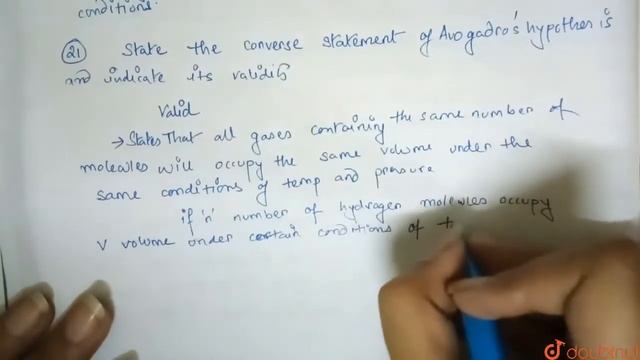 conditions.
(21) State the converse statement of Avogadro's hypothesis
and indicate its validity
Valid
→ States That all gases containing the same number of
molecules will occupy the same volume under the
same conditions of temp and pressure
if 'n' number of hydrogen molecules occupy
V volume under certain conditions of t
doubtnut